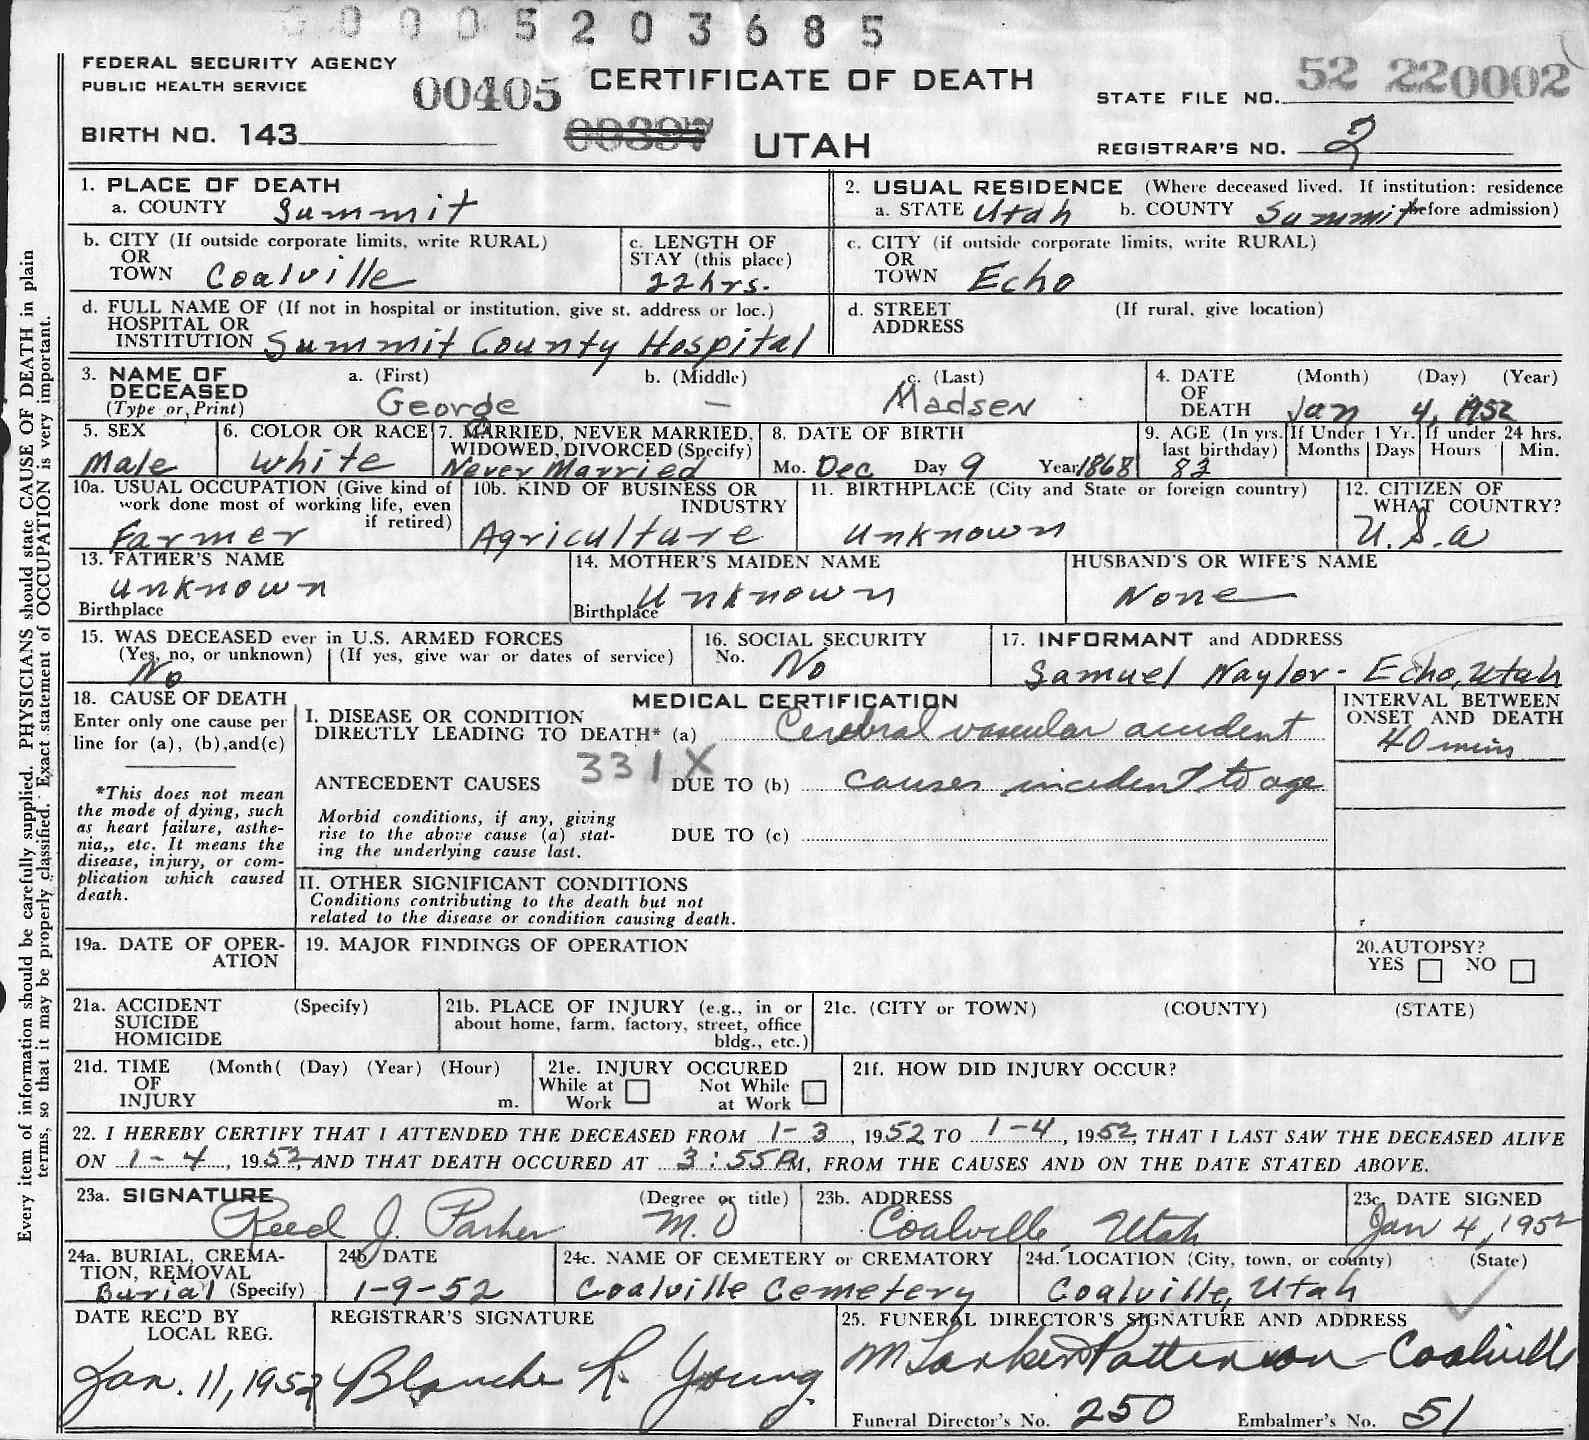 0005203685
FEDERAL SECURITY AGENCY
PUBLIC HEALTH SERVICE
00405
CERTIFICATE OF DEATH
STATE FILE NO. 52 220002
BIRTH NO. 143
00397
UTAH
REGISTRAR'S NO. 2
Every item of information should be carefully supplied. PHYSICIANS should state CAUSE OF DEATH in plain
terms, so that it may be properly classified. Exact statement of OCCUPATION is very important.
1. PLACE OF DEATH
a. COUNTY Summit
2. USUAL RESIDENCE (Where deceased lived. If institution: residence
a. STATE Utah b. COUNTY Summit before admission)
b. CITY (If outside corporate limits, write RURAL)
OR
TOWN Coalville
c. LENGTH OF
STAY (this place)
22hrs.
c. CITY (if outside corporate limits, write RURAL)
OR
TOWN Echo
d. FULL NAME OF (If not in hospital or institution, give st. address or loc.)
HOSPITAL OR
INSTITUTION Summit County Hospital
d. STREET (If rural, give location)
ADDRESS
3. NAME OF a. (First) b. (Middle) c. (Last)
DECEASED
(Type or Print) George — Madsen
4. DATE (Month) (Day) (Year)
OF
DEATH Jan 4, 1952
5. SEX
Male
6. COLOR OR RACE
White
7. MARRIED, NEVER MARRIED,
WIDOWED, DIVORCED (Specify)
Never Married
8. DATE OF BIRTH
Mo. Dec Day 9 Year 1868
9. AGE (In yrs.
last birthday)
83
If Under 1 Yr.
Months Days
If under 24 hrs.
Hours Min.
10a. USUAL OCCUPATION (Give kind of
work done most of working life, even
if retired)
Farmer
10b. KIND OF BUSINESS OR
INDUSTRY
Agriculture
11. BIRTHPLACE (City and State or foreign country)
Unknown
12. CITIZEN OF
WHAT COUNTRY?
U.S.a
13. FATHER'S NAME
Unknown
Birthplace
14. MOTHER'S MAIDEN NAME
Unknown
Birthplace
HUSBAND'S OR WIFE'S NAME
None
15. WAS DECEASED ever in U.S. ARMED FORCES
(Yes, no, or unknown) (If yes, give war or dates of service)
No
16. SOCIAL SECURITY
No. No
17. INFORMANT and ADDRESS
Samuel Naylor - Echo, Utah
18. CAUSE OF DEATH
Enter only one cause per
line for (a), (b),and(c)
*This does not mean
the mode of dying, such
as heart failure, asthe-
nia,, etc. It means the
disease, injury, or com-
plication which caused
death.
MEDICAL CERTIFICATION
I. DISEASE OR CONDITION
DIRECTLY LEADING TO DEATH* (a) Cerebral vascular accident
331X
ANTECEDENT CAUSES DUE TO (b) causes incident to age
Morbid conditions, if any, giving
rise to the above cause (a) stat-
ing the underlying cause last.
DUE TO (c)
INTERVAL BETWEEN
ONSET AND DEATH
40 mins
II. OTHER SIGNIFICANT CONDITIONS
Conditions contributing to the death but not
related to the disease or condition causing death.
19a. DATE OF OPER-
ATION
19. MAJOR FINDINGS OF OPERATION
20.AUTOPSY?
YES NO
21a. ACCIDENT (Specify)
SUICIDE
HOMICIDE
21b. PLACE OF INJURY (e.g., in or
about home, farm, factory, street, office
bldg., etc.)
21c. (CITY or TOWN) (COUNTY) (STATE)
21d. TIME (Month( (Day) (Year) (Hour)
OF
INJURY m.
21e. INJURY OCCURED
While at Not While
Work at Work
21f. HOW DID INJURY OCCUR?
22. I HEREBY CERTIFY THAT I ATTENDED THE DECEASED FROM 1-3, 1952 TO 1-4, 1952, THAT I LAST SAW THE DECEASED ALIVE
ON 1-4, 1952, AND THAT DEATH OCCURED AT 3:55PM, FROM THE CAUSES AND ON THE DATE STATED ABOVE.
23a. SIGNATURE (Degree or title)
Reed J. Parker M.D
23b. ADDRESS
Coalville, Utah
23c. DATE SIGNED
Jan 4, 1952
24a. BURIAL, CREMA-
TION, REMOVAL
Burial (Specify)
24b. DATE
1-9-52
24c. NAME OF CEMETERY or CREMATORY
Coalville Cemetery
24d. LOCATION (City, town, or county) (State)
Coalville, Utah
DATE REC'D BY
LOCAL REG.
Jan. 11, 1952
REGISTRAR'S SIGNATURE
Blanche R. Young
25. FUNERAL DIRECTOR'S SIGNATURE AND ADDRESS
Patterson - Coalville
Funeral Director's No. 250 Embalmer's No. 51